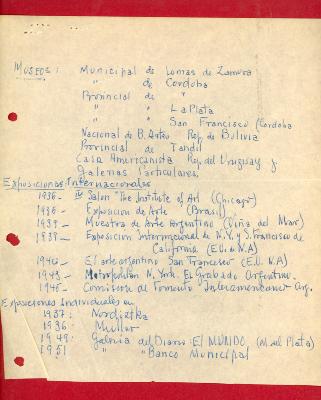 MUSEOS: Municipal de Lomas de Zamora
" de Cordoba
Provincial de "
" " La Plata
" " San Francisco (Cordoba
Nacional de B. Artes Rep. de Bolivia
Provincial de Tandil
Casa Americanista Rep. del Uruguay y
Galerias Particulares.
Exposiciones Internacionales
1936- Salon "The Institute of Art (Chicago)
1936- Exposicion de Arte (Brasil)
1937- Muestra de Arte Argentino (Viña del Mar)
1939- Exposicion Internacional de N.Y. y S. Francisco de
California (E.U. de N.A)
1940- El arte argentino San Francisco (E.U. N.A)
1943- Metropolitan N. York. El Grabado Argentino.
1946- Comision de Fomento Interamericano Arg.
Exposiciones Individuales en
1937: Nordiska
1936: Muller
1949: Galeria del Diario: El MUNDO, (M. del Plata)
1951 " " Banco Municipal